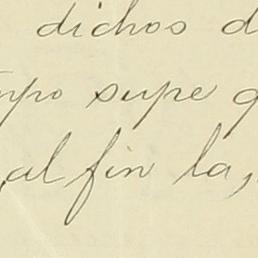 dichos d
mpo supe q
al fin la,